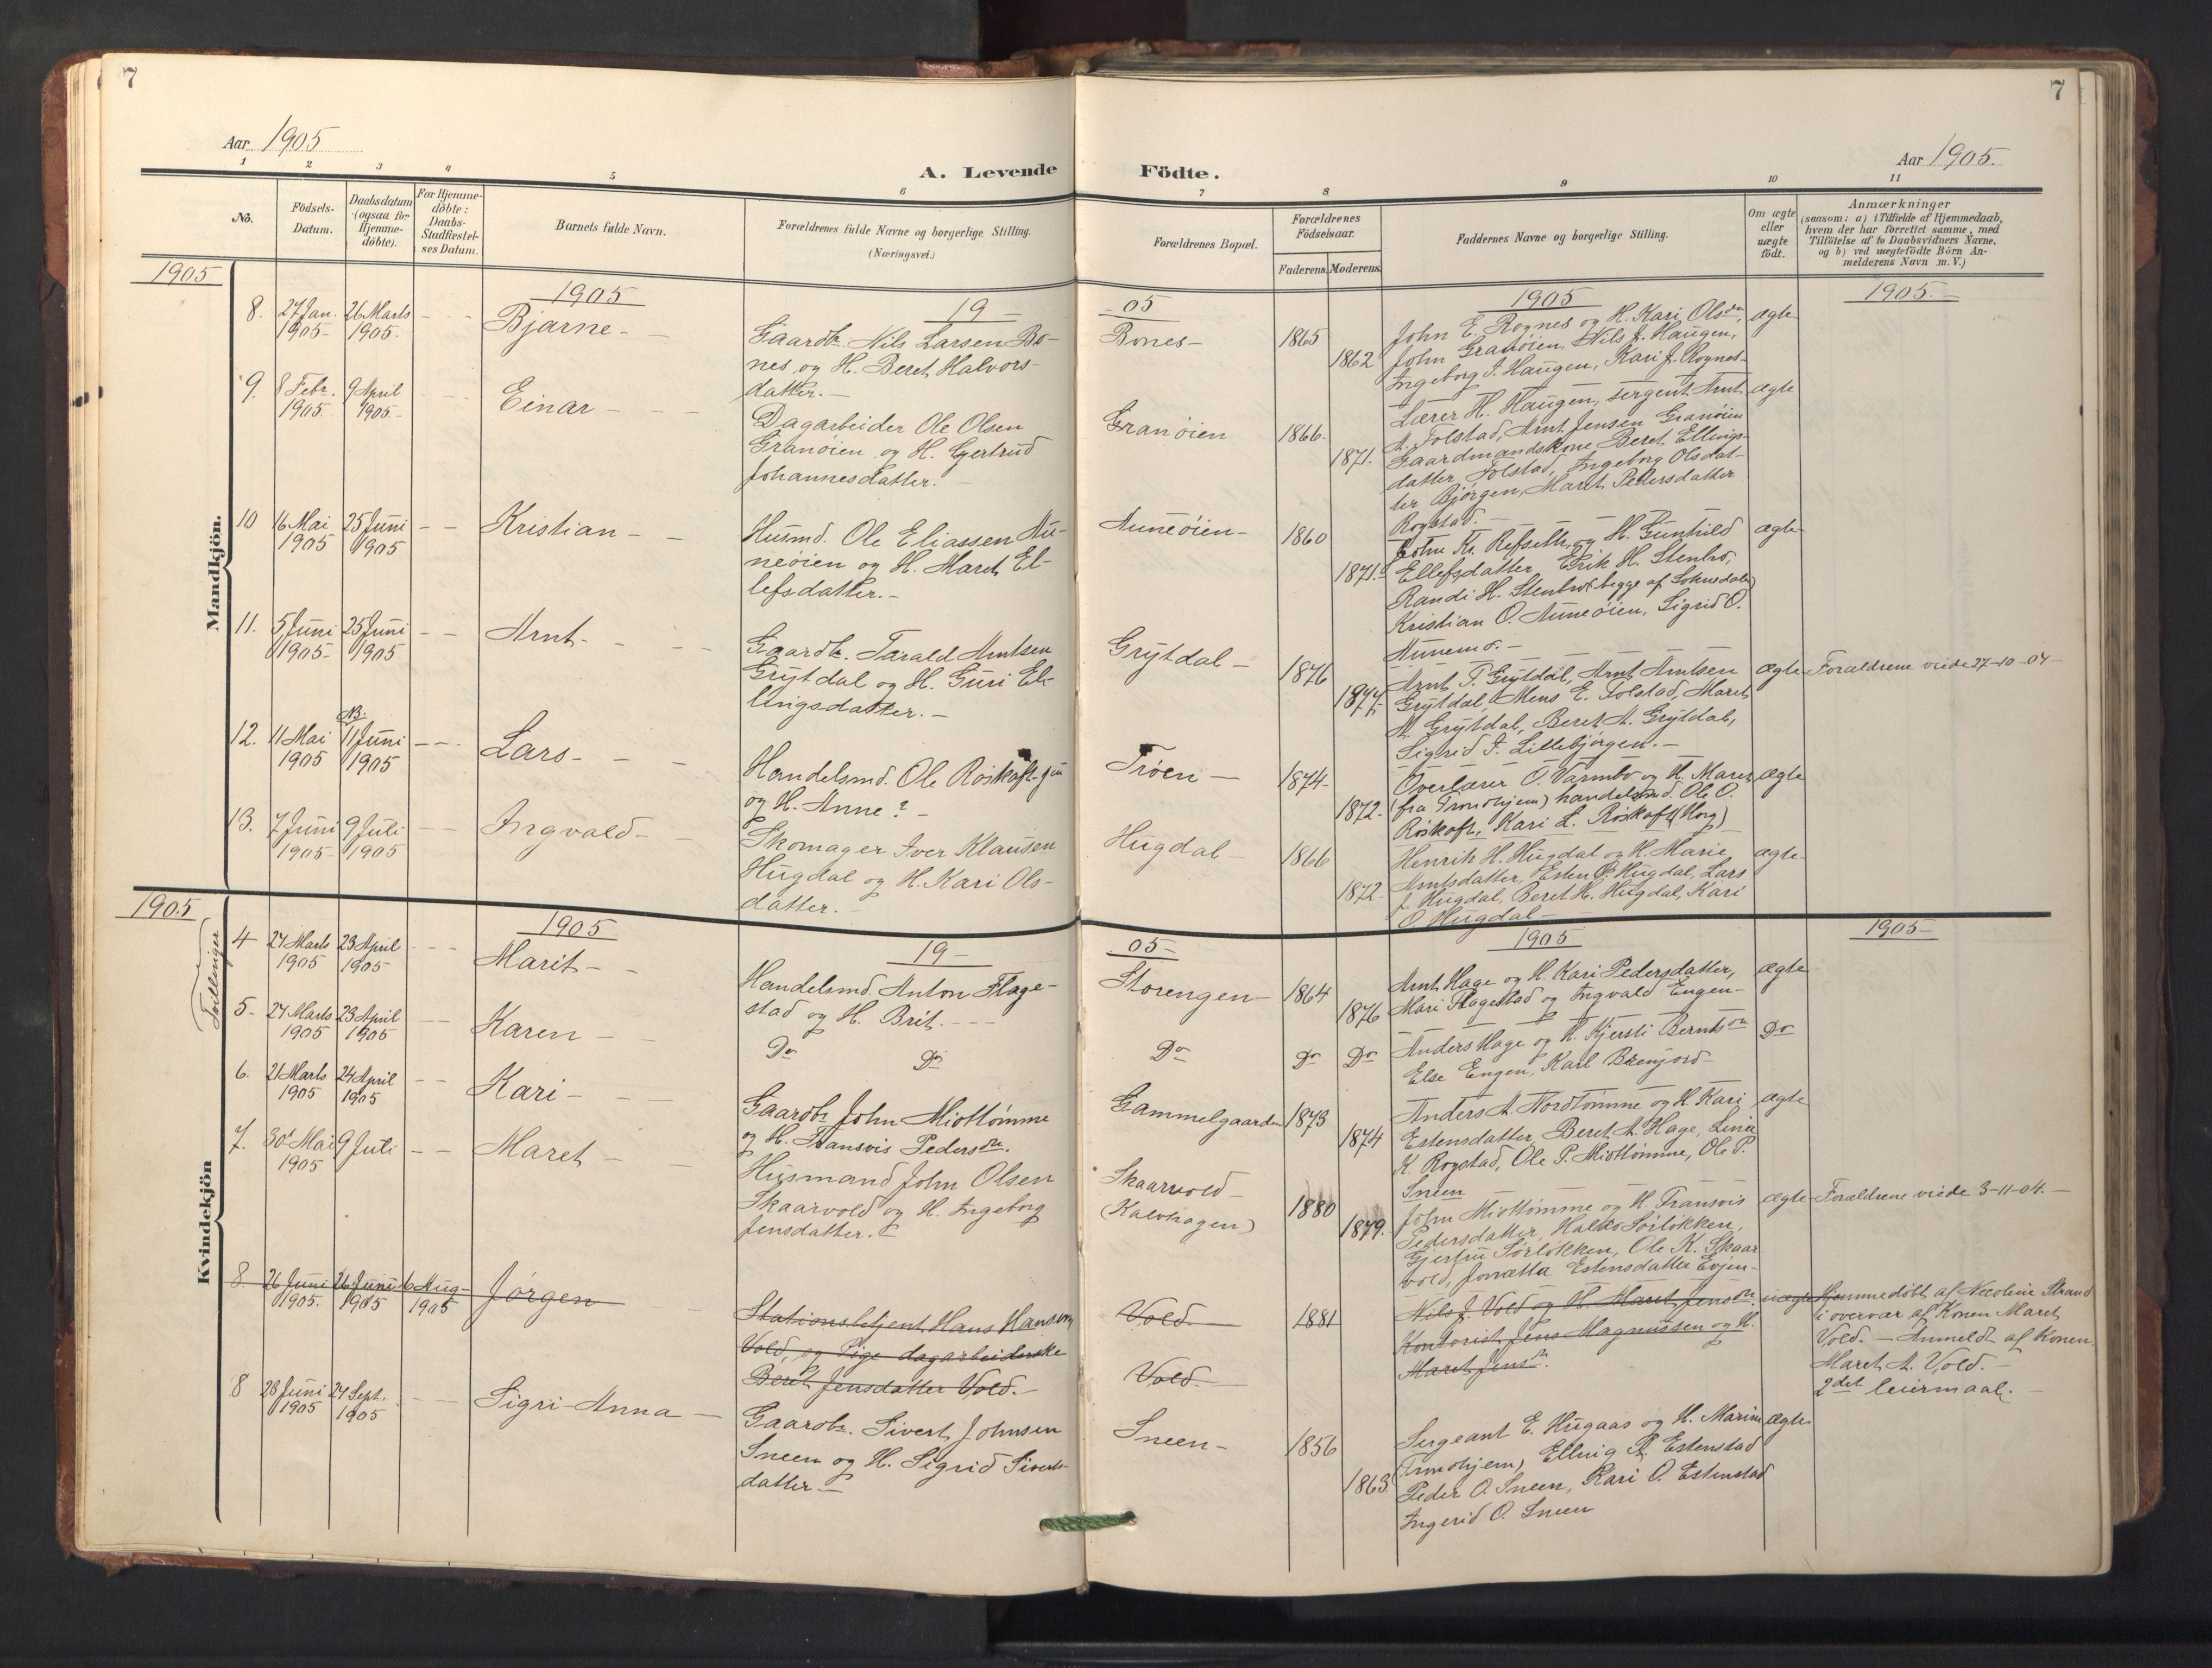 7
7
Aar 1905
A. Levende
Födte.
Aar 1905.
1 2 3 4 5 6 7 8 9 10 11
No.
Födsels-
Datum.
Daabsdatum
(ogsaa for
Hjemme-
döbte).
For Hjemme-
döbte:
Daabs-
Stadfæstel-
ses Datum.
Barnets fulde Navn.
Forældrenes fulde Navne og borgerlige Stilling.
(Næringsvei.)
Forældrenes Bopæl.
Forældrenes
Födselsaar.
Faderens.
Moderens.
Faddernes Navne og borgerlige Stilling.
Om ægte
eller
uægte
födt.
Anmærkninger
(saasom: a) i Tilfælde af Hjemmedaab,
hvem der har forrettet samme, med
Tilföielse af to Daabsvidners Navne.
og b) ved uægtefödte Börn An-
melderens Navn m. V.)
1905
1905
19 -
- 05
1905
1905. -
Mandkjön.
8.
27 Jan.
1905 -
26 Marts
1905.
Bjarne -
Gaardbr. Nils Larsen Bo-
nes og H. Beret Halvors-
datter. -
Bones -
1865
1862
John E. Rognes og H. Kari Olsdr,
John Granöien, Nils J. Haugen,
Ingeborg J. Haugen, Kari J. Rognes -
ægte
9.
8 Febr.
1905
9 April
1905. -
Einar -
Dagarbeider Ole Olsen
Granöien og H. Gjertrud
Johannesdatter. -
Granöien
1866.
1871.
Lærer H. Haugen, sergent Arnt
A. Folstad, Arnt Jensen Granöien
Gaardmandskone Beret Ellings-
datter Folstad, Ingeborg Olsdat-
ter Bjørgen, Maret Pedersdatter
Rogstad. -
ægte
10
16 Mai
1905
25 Juni
1905
Kristian -
Husmd. Ole Eliassen Au-
neöien og H. Maret El-
lefsdatter. -
Auneöien -
1860
1871.
Kr. Refseth, og H. Gunhild
Ellefsdatter, Erik H. Stenbro,
Randi H. Stenbro (begge af Soknedalen)
Kristian O. Auneöien, Sigrid O.
Aunemo. -
ægte
11.
5 Juni
1905 -
25 Juni
1905
Arnt -
Gaardbr. Tarald Arntsen
Grytdal og H. Guri El-
lingsdatter. -
Grytdal -
1876
1877
Arnt T. Grytdal, Arnt Arntsen
Grytdal, Mens E. Folstad, Maret
A. Grytdal, Beret A. Grytdal,
Sigrid J. Lillebjørgen. -
ægte
Forældrene viede 27-10-04 -
12.
11 Mai
1905
NB.
11 Juni
1905
Lars -
Handelsmd. Ole Röskaft jun
og H. Anne ? -
Tröen -
1874 -
1872.
Overlærer O. Varmbo og H. Maret
(fra Trondhjem) handelsmd. Ole O.
Röskaft, Kari L. Röskaft (Horg)
ægte
13.
7 Juni
1905 -
9 Juli
1905
Ingvald -
Skomager Iver Klausen
Hugdal og H. Kari Ols-
datter. -
Hugdal -
1866
1872 -
Henrik H. Hugdal og H. Marie
Arntsdatter, Esten O. Hugdal, Lars
J. Hugdal, Beret H. Hugdal, Kari
O. Hugdal -
ægte
1905
1905
19 -
05 -
1905
1905 -
Kvindekjön
Tvillinger
4
27 Marts
1905
23 April
1905
Marit -
Handelsmd. Anton Flage-
stad og H. Brit. - - -
Storengen -
1864
1876
Arnt Hage og H. Kari Pedersdatter,
Mari Flagestad og Ingvald Engen -
ægte
5 -
27 Marts
1905
23 April
1905
Karen -
Do Do
Do
Do
Do
Anders Hage og H. Kjersti Berntsdr
Else Engen, Karl Brenjord -
Do
6.
21 Marts
1905
24 April
1905
Kari -
Gaardbr John Midttömme
og H. Fransvis Pedersdr.
Gammelgaarden
1873
1874
Anders A. Nordtömme og H. Kari
Estensdatter, Beret A. Hage, Line
K. Rogstad, Ole P. Midttömme, Ole P.
Sneen
ægte
7.
30 Mai
1905
9 Juli
Maret -
Husmand John Olsen
Skaarvold og H. Ingeborg
Jensdatter. -
Skaarvold -
(Kalvhagen)
1880
1879.
John Midttömme og H. Fransvis
Pedersdatter, Halvo Sörlökken,
Gjertru Sörlökken, Ole K. Skaar-
vold, Jonetta Estensdatter Evjen -
ægte
Forældrene viede 3-11-04. -
8.
26 Juni
1905.
26 Juni
1905
6 Aug -
1905
Jörgen
Stationsbetjent Hans Hansen
Vold, og Pige dagarbeiderske
Beret Jensdatter Vold. -
Vold. -
Vold. -
1881
Nils J. Vold og H. Maret Jensdr.
Kontorist Jens Magnussen og H.
Maret Jensdr.
uægte
Hjemmedöbt af Nicoline Strand
i overvær af Konen Maret
Vold. - Anmeldt af Konen
Maret A. Vold. -
2det leiermaal. -
8
28 Juni
1905
24 Sept.
1905
Sigri-Anna -
Gaardbr. Sivert Johnsen
Sneen og H. Sigrid Siverts-
datter -
Sneen -
1856
1863.
Sergeant E. Hugaas og H. Marie
(Trondhjem) Elling A. Estenstad
Peder O. Sneen, Kari O. Estenstad
Ingerid O. Sneen
ægte